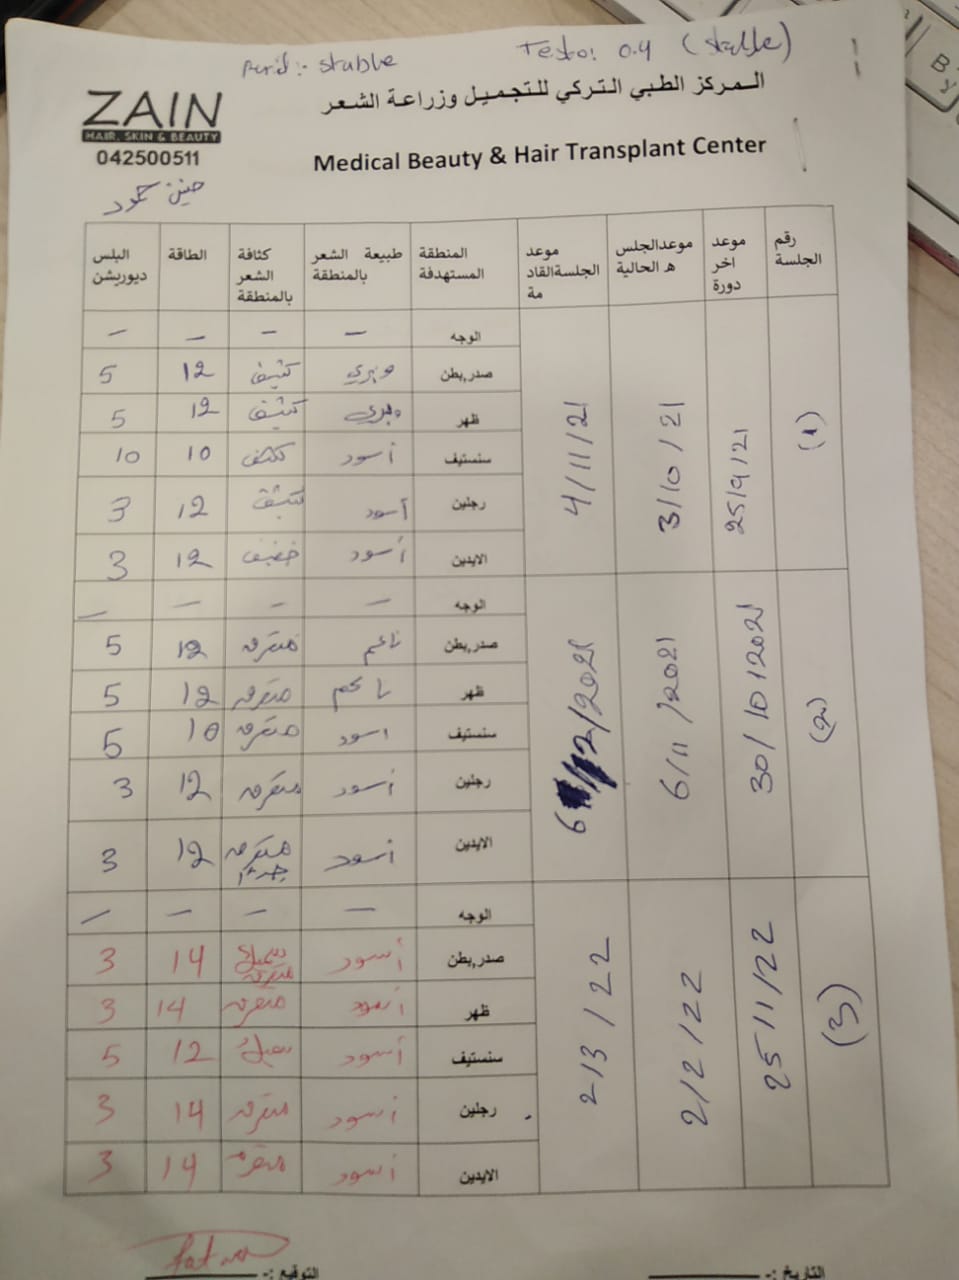 Period:- stable Testo: 0.4 (stable)
ZAIN
HAIR, SKIN & BEAUTY
042500511
المركز الطبي التركي للتجميل وزراعة الشعر
Medical Beauty & Hair Transplant Center
حنين حمود
رقم الجلسة | موعد اخر دورة | موعدالجلسة الحالية | موعد الجلسةالقادمة | المنطقة المستهدفة | طبيعة الشعر بالمنطقة | كثافة الشعر بالمنطقة | الطاقة | البلس ديوريشن
(1) | 25/9/21 | 3/10/21 | 4/11/21
الوجه | — | — | — | —
صدر,بطن | وبري | كثيف | 12 | 5
ظهر | وبري | كثيف | 12 | 5
سنستيف | أسود | كثيف | 10 | 10
رجلين | أسود | كثيف | 12 | 3
الايدين | أسود | خفيف | 12 | 3
(2) | 30/10/2021 | 6/11/2021 | 6/12/2021
الوجه | — | — | — | —
صدر,بطن | ناعم | متفرقه | 12 | 5
ظهر | ناعم | متفرقه | 12 | 5
سنستيف | اسود | متفرقه | 10 | 5
رجلين | أسود | متفرقه | 12 | 3
الايدين | أسود | متفرقه جدا | 12 | 3
(3) | 25/11/22 | 2/2/22 | 2/3/22
الوجه | — | — | — | —
صدر,بطن | أسود | متفرقه | 14 | 3
ظهر | أسود | متفرقه | 14 | 3
سنستيف | أسود | 12 | 5
رجلين | أسود | متفرقه | 14 | 3
الايدين | أسود | متفرقه | 14 | 3
التاريخ :- التوقيع :-